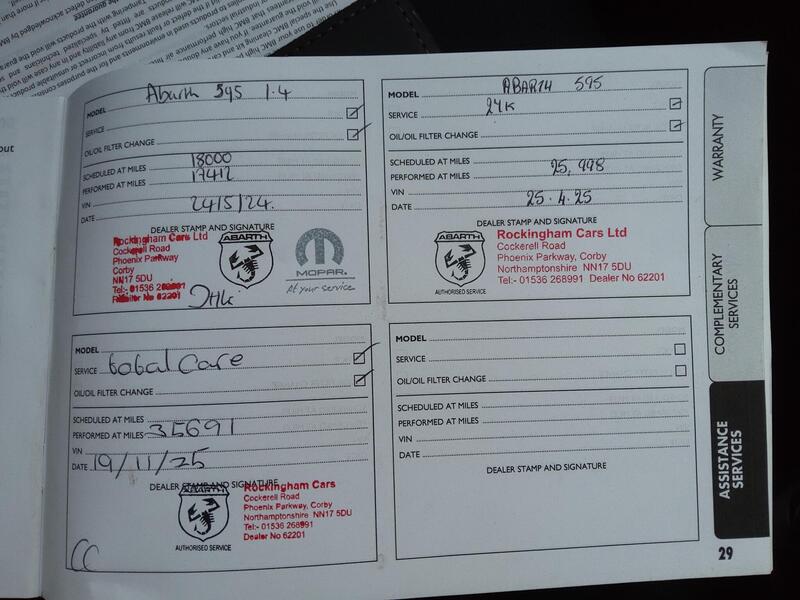 MODEL Abarth 595 1.4
SERVICE
OIL/OIL FILTER CHANGE
SCHEDULED AT MILES 18000
PERFORMED AT MILES 17412
VIN
DATE 24/5/24.
DEALER STAMP AND SIGNATURE
Rockingham Cars Ltd
Cockerell Road
Phoenix Parkway
Corby
NN17 5DU
Tel:- 01536 268991
No 62201
ABARTH
MOPAR.
At your service
MODEL ABARTH 595
SERVICE 24K
OIL/OIL FILTER CHANGE
SCHEDULED AT MILES
PERFORMED AT MILES 25,998
VIN
DATE 25.4.25
DEALER STAMP AND SIGNATURE
ABARTH
AUTHORISED SERVICE
Rockingham Cars Ltd
Cockerell Road
Phoenix Parkway, Corby
Northamptonshire NN17 5DU
Tel:- 01536 268991 Dealer No 62201
MODEL
SERVICE total Care
OIL/OIL FILTER CHANGE
SCHEDULED AT MILES
PERFORMED AT MILES 35691
VIN
DATE 19/11/25
DEALER STAMP AND SIGNATURE
ABARTH
AUTHORISED SERVICE
Rockingham Cars
Cockerell Road
Phoenix Parkway, Corby
Northamptonshire NN17 5DU
Tel:- 01536 268991
Dealer No 62201
CC
MODEL
SERVICE
OIL/OIL FILTER CHANGE
SCHEDULED AT MILES
PERFORMED AT MILES
VIN
DATE
DEALER STAMP AND SIGNATURE
WARRANTY
COMPLEMENTARY
SERVICES
ASSISTANCE
SERVICES
29
out